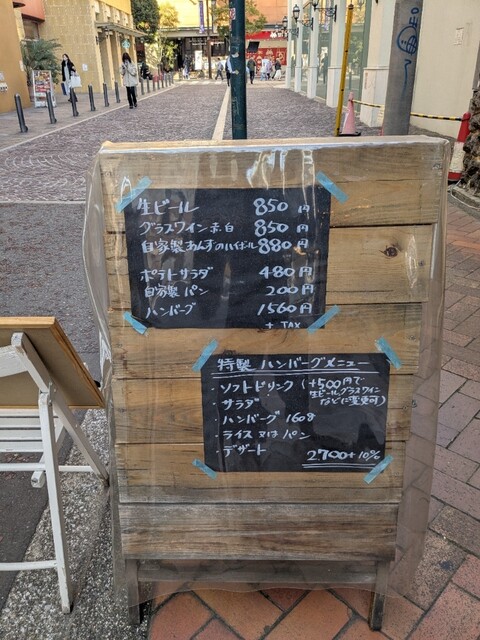 生ビール 850円
グラスワイン 赤・白 850円
自家製あんずのハイボール 880円
ポテトサラダ 480円
自家製パン 200円
ハンバーグ 1560円
+ TAX
特製 ハンバーグメニュー
・ソフトドリンク (+500円で
生ビール、グラスワイン
などに変更可)
・サラダ
・ハンバーグ 160g
・ライス 又は パン
・デザート
2700+10%